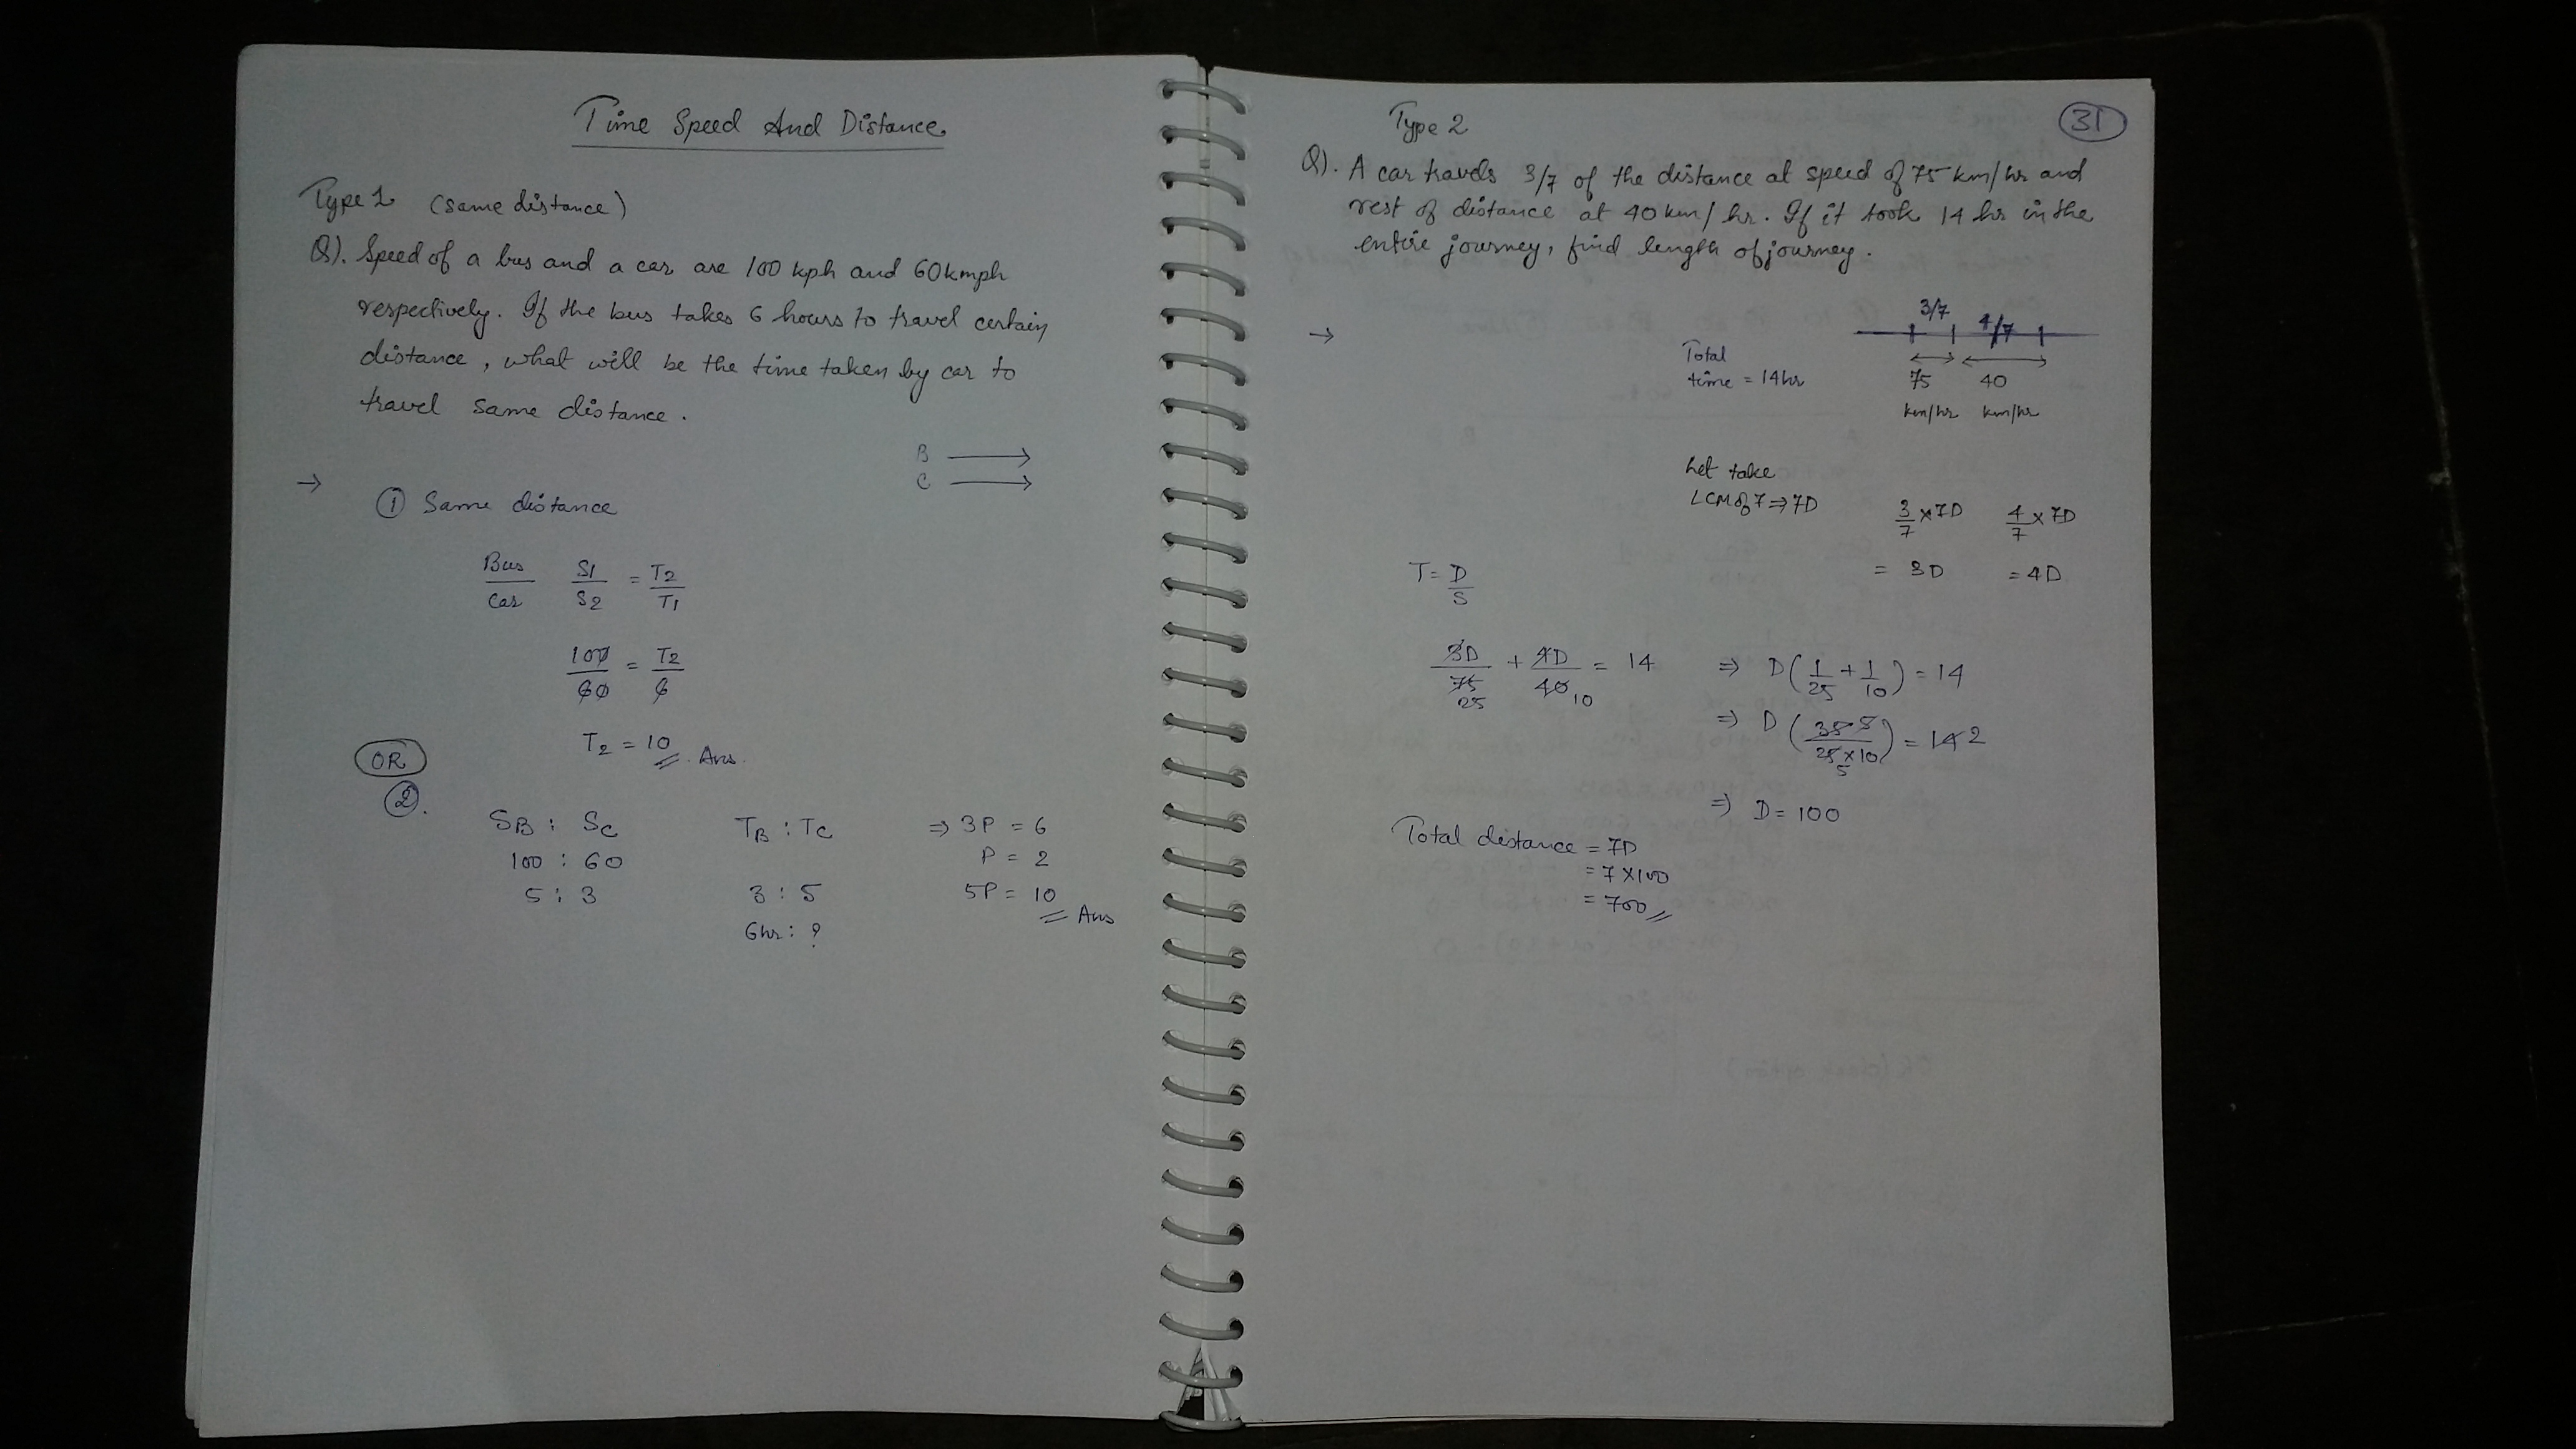 Time Speed And Distance
Type 1 (same distance)
Q). Speed of a bus and a car are 100 kph and 60kmph
respectively. If the bus takes 6 hours to travel certain
distance, what will be the time taken by car to
travel same distance.
B →
C →
→
① Same distance
Bus/Car S1/S2 = T2/T1
100/60 = T2/6
T2 = 10 Ans.
OR
②.
SB : SC TB : TC ⇒ 3P = 6
100 : 60 P = 2
5 : 3 3 : 5 5P = 10 Ans
6hr : ?
31
Type 2
Q). A car travels 3/7 of the distance at speed of 75 km/hr and
rest of distance at 40 km/hr. If it took 14 hr in the
entire journey, find length of journey.
→
3/7 4/7
Total
time = 14hr
75 40
km/hr km/hr
Let take
LCM of 7 ⇒ 7D
3/7 × 7D 4/7 × 7D
= 3D = 4D
T = D/S
3D/75 + 4D/40 = 14 ⇒ D(1/25 + 1/10) = 14
25 10
⇒ D(35/25×10) = 14 2
5
⇒ D = 100
Total distance = 7D
= 7 × 100
= 700